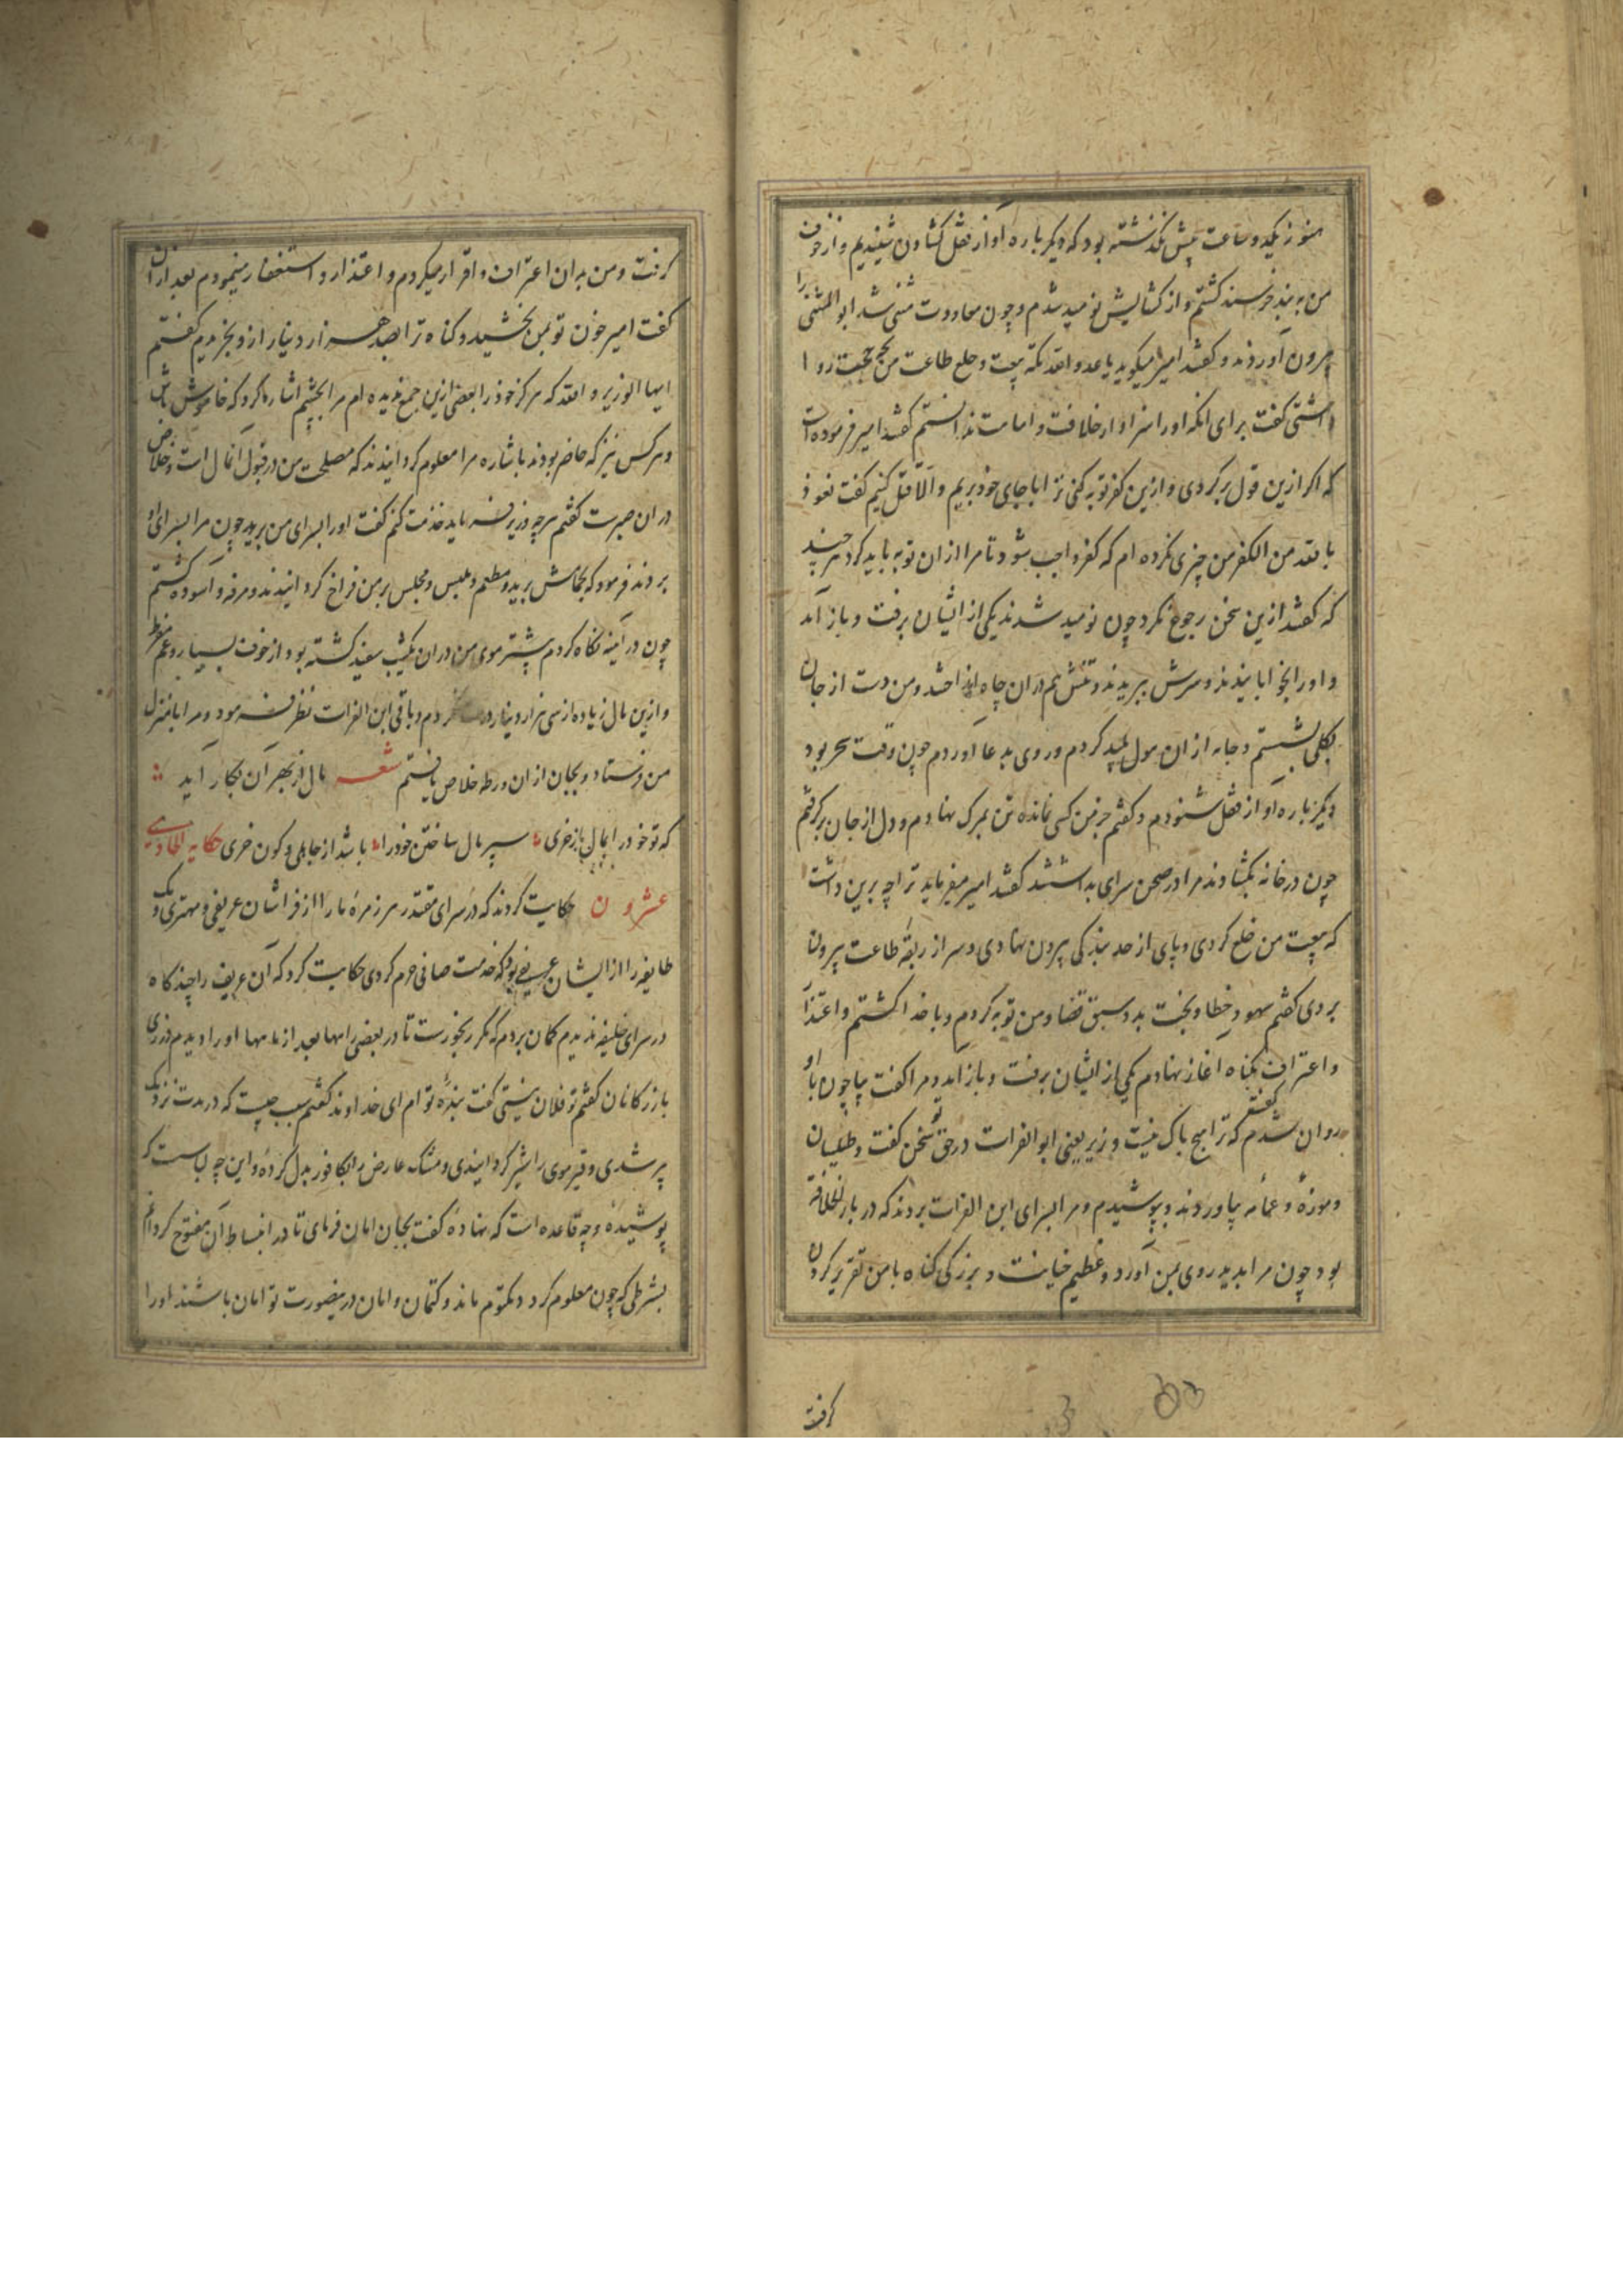 هنوز یکدو ساعت پیش نگذشته بود که دیکر باره آواز قفل کشادن شنیدیم و از خوف
من به بند خرسند کشتم و از کشایش نومید شدم و چون معاودت مثنی شد ابو المثنی را
بیرون آوردند و کفتند امیر میکوید یا عدو الله نکث بیعت و خلع طاعت من بچه حجت روا
داشتی کفت برای انکه اورا سزاوار خلافت و امامت ندانستم کفتند امیر فرموده است
که اکر ازین قول برکردی و ازین کفر توبه کنی ترا با جای خود بریم و الا قتل کنیم کفت نعوذ
بالله من الکفر من چیزی نکرده ام که کفر واجب شود تا مرا از ان توبه باید کرد هرچند
که کفتند ازین سخن رجوع نکرد چون نومید شدند یکی از ایشان برفت و باز آمد
و اورا بخوابانیدند و سرش ببریدند و تنش هم دران چاه انداختند و من دست از جان
بکلی بشستم و جامه از ان هول پلید کردم و روی بدعا آوردم چون وقت سحر بود
دیکر باره آواز قفل شنودم و کفتم جز من کسی نمانده تن بمرک نهادم و دل از جان برکرفتم
چون در خانه بکشادند مرا در صحن سرای بداشتند کفتند امیر میفرماید ترا چه برین داشت
که بیعت من خلع کردی و پای از حد بندکی بیرون نهادی و سر از ربقه طاعت بیرون
بردی کفتم سهو و خطا و بخت بد و سبق قضا و من توبه کردم و با خدا کشتم و اعتذار
و اعتراف بکناه آغاز نهادم یکی از ایشان برفت و باز آمد و مرا کفت بیا چون با او
روان شدم کفتند که ترا هیچ باک نیست وزیر یعنی ابو الفرات در حق تو سخن کفت و طیلسان
و موزه و عمامه بیاوردند و بپوشیدم و مرا بسرای ابن الفرات بردند که در دار الخلافة
بود چون مرا بدید روی بمن آورد و عظیم خیانت و بزرکی کناه با من تقریر کردن
کرفت
کرفت و من بدان اعتراف و اقرار میکردم و اعتذار و استغفار مینمودم بعد ازان
کفت امیر خون تو بمن بخشید و کناه ترا بصد هزار دینار ازو بخریدم کفتم
ایها الوزیر والله که هرکز خود را بعضی ازین جمع ندیده ام مرا بچشم اشاره کرد که خاموش باش
و هرکس نیز که حاضر بودند باشاره مرا معلوم کردانیدند که مصلحت من در قبول آنمال است و خلاص
دران صبرت کفتم هرچه وزیر فرماید خدمت کنم کفت اورا بسرای من برید چون مرا بسرای او
بردند فرمود که بحمامش برید و مطعم و ملبس و مجلس بر من فراخ کردانیدند و مرفه و آسوده کشتم
چون در آینه نکاه کردم بیشتر موی من دران یکشب سفید کشته بود از خوف بسیار و غم مفرط
و ازین مال زیاده از سی هزار دینار در کردم و باقی ابن الفرات نظر فرمود و مرا با منزل
من فرستاد و بجان از ان ورطه خلاص یافتم شعر مال از بهر آن بکار آید
که تو خود را بمال باز خری سپر مال ساختن خود را باشد از جاهلی و کون خری حکایة الحادی
عشرون حکایت کردند که در سرای مقتدر هر زمره را از فراشان عریفی و مهتری و یک
طایفه را از ایشان عریفی بود که خدمت صافی حرم کردی حکایت کرد که آن عریف را چند کاه
در سرای خلیفه ندیدم کمان بردم که مکر رنجورست تا در بعضی راهها بعد از ماهها اورا دیدم در زی
بازرکانان کفتم تو فلان نیستی کفت بنده تو ام ای خداوند کفتم سبب چیست که در مدت نزدیک
پیر شدی و قیر موی را شیر کردانیدی و مشک عارض را بکافور بدل کرده و این چه لباست که
پوشیده و چه قاعده است که نهاده کفت بجان امان فرمای تا در انبساط آن مفتوح کردانم
بشرطی که چون معلوم کرد و مکتوم ماند و کتمان و امان درینصورت تو امان باشند اورا